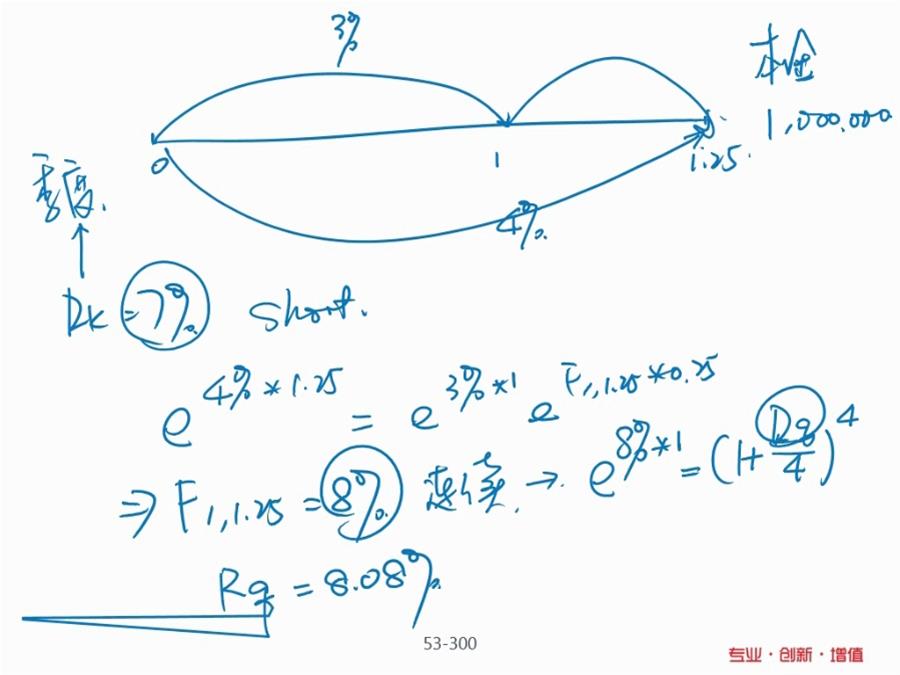 3%
本金
1,000.000
0
1
1.25.
4%.
季度.
RK=7%. short.
e^{4%*1.25} = e^{3%*1} e^{F_{1,1.25}*0.25}
⇒ F_{1,1.25} = 8%. 连续. → e^{8%*1} = (1+Rq/4)^4
Rq = 8.08%.
53-300
专业·创新·增值